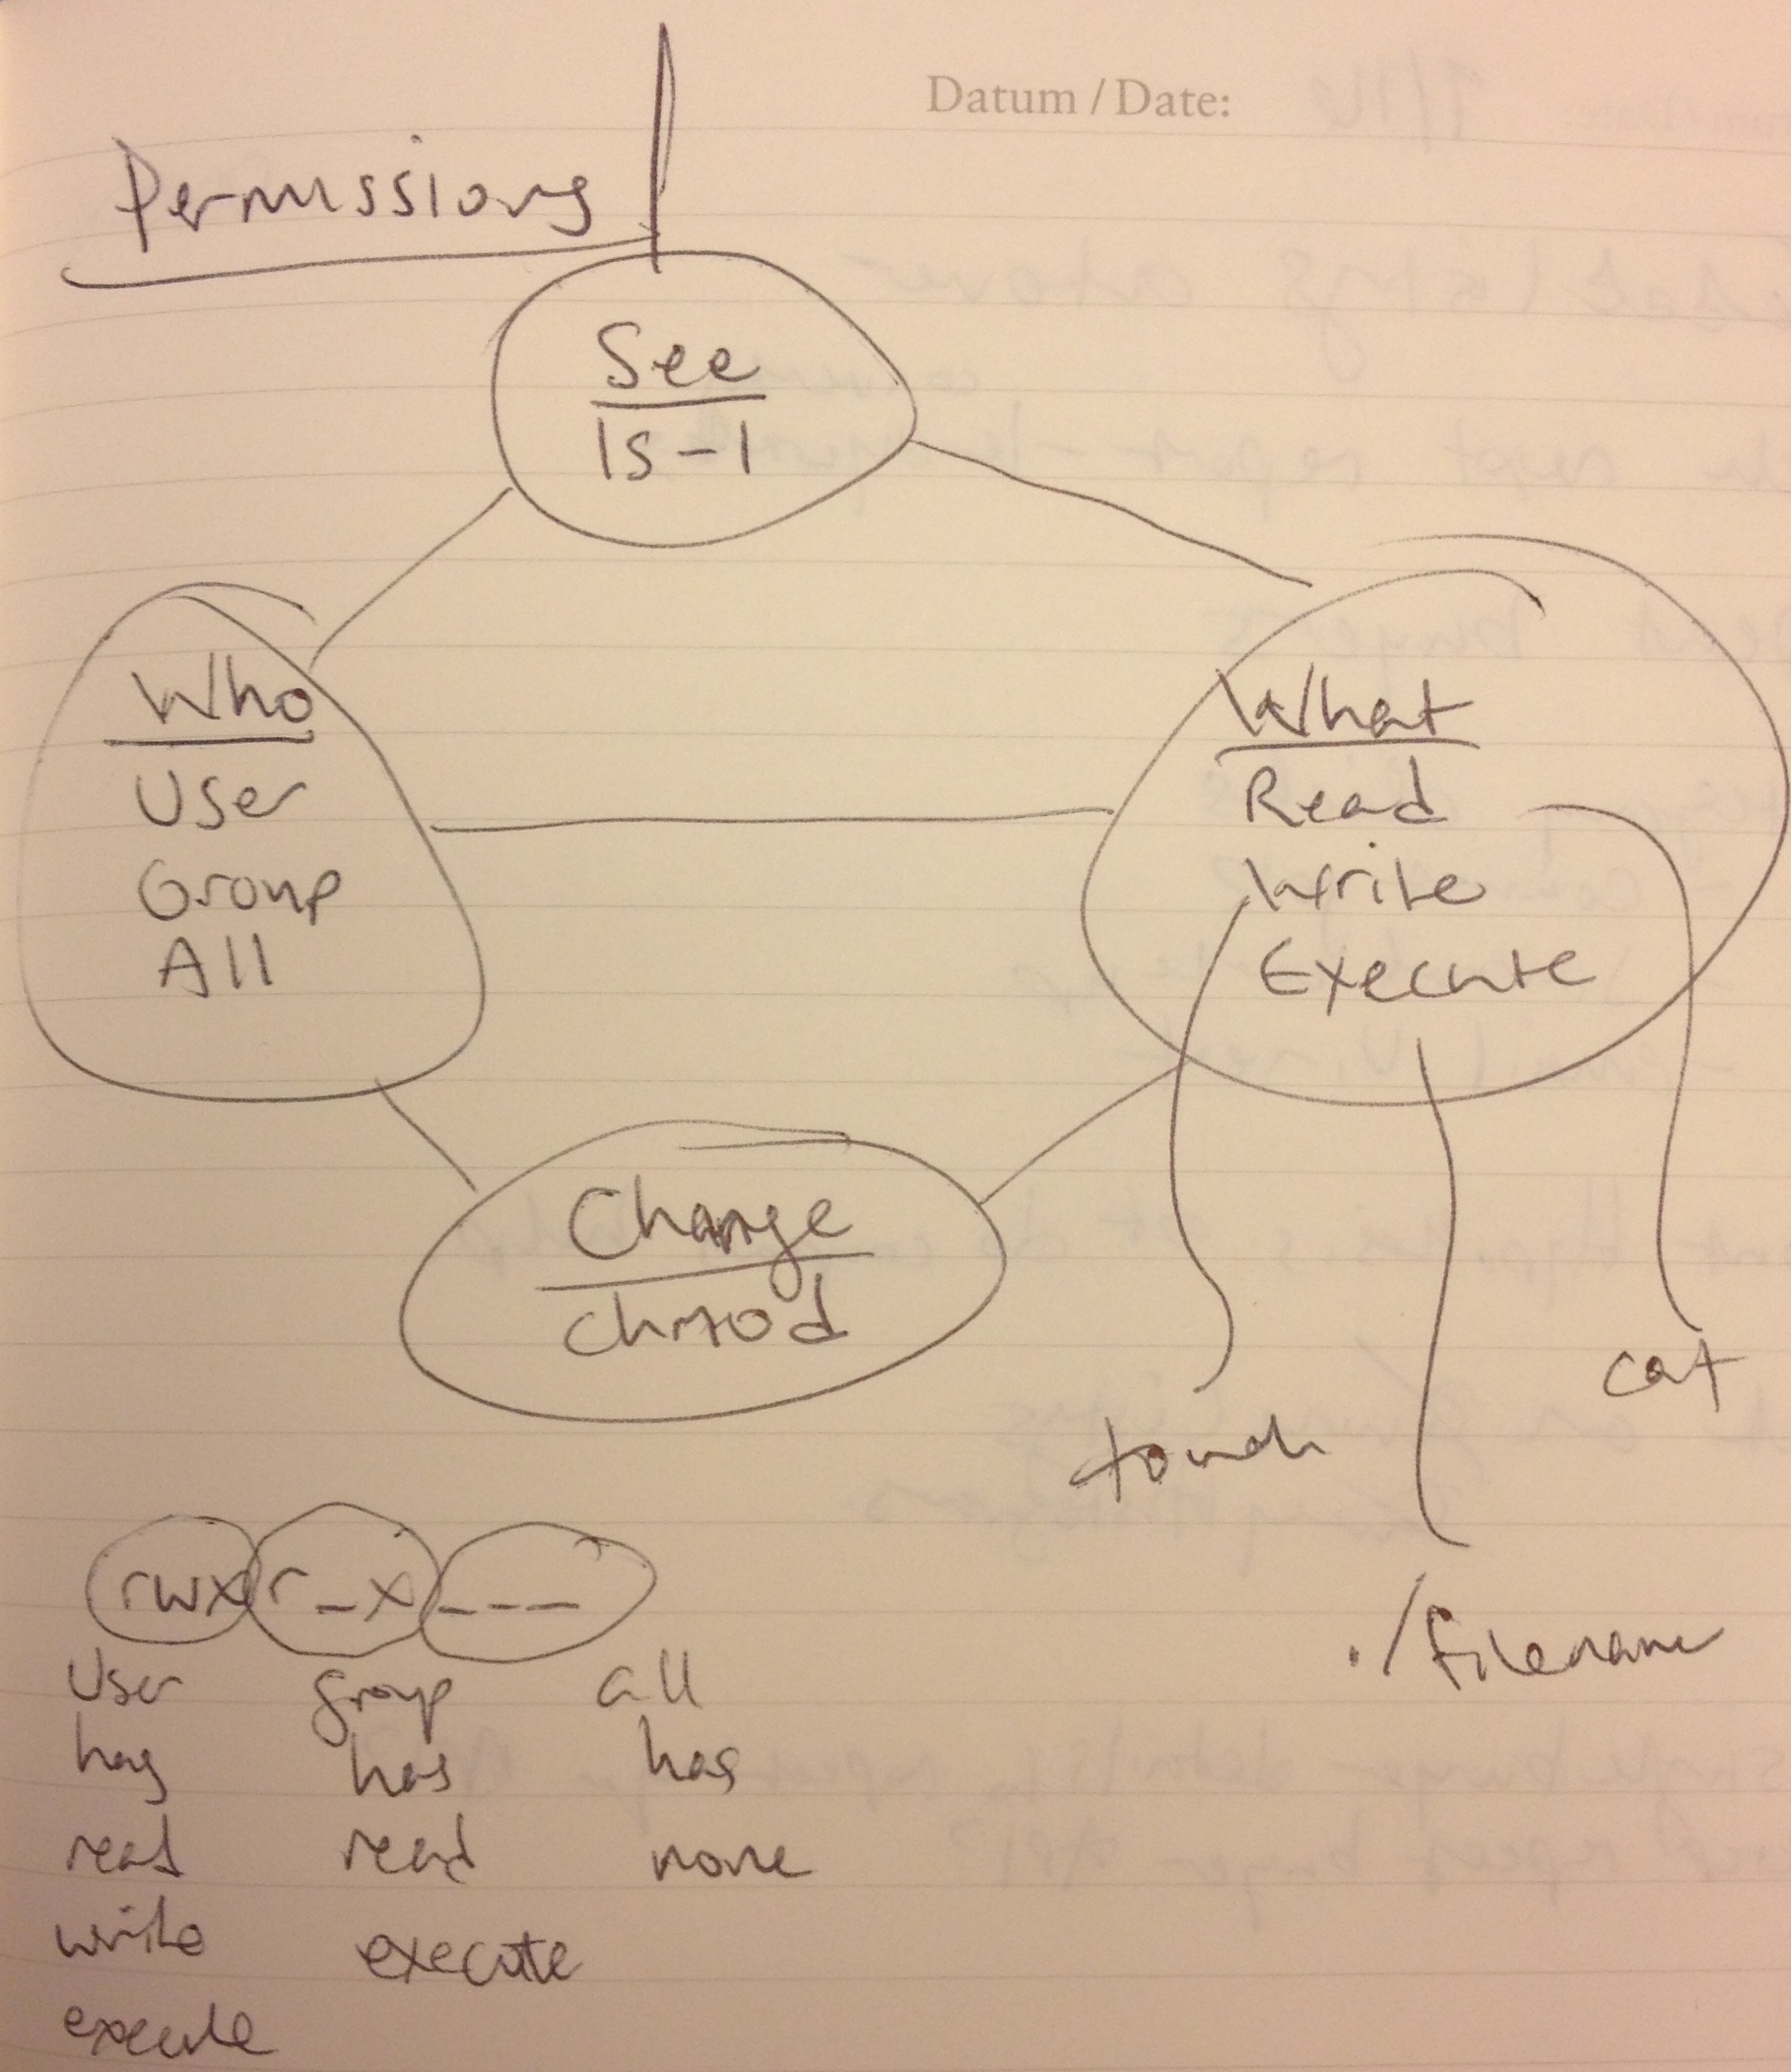 Datum / Date:
Permissions
See
ls -l
Who
User
Group
All
What
Read
Write
Execute
Change
chmod
cat
touch
./filename
rwx r_x ___
User group all
has has has
read read none
write execute
execute